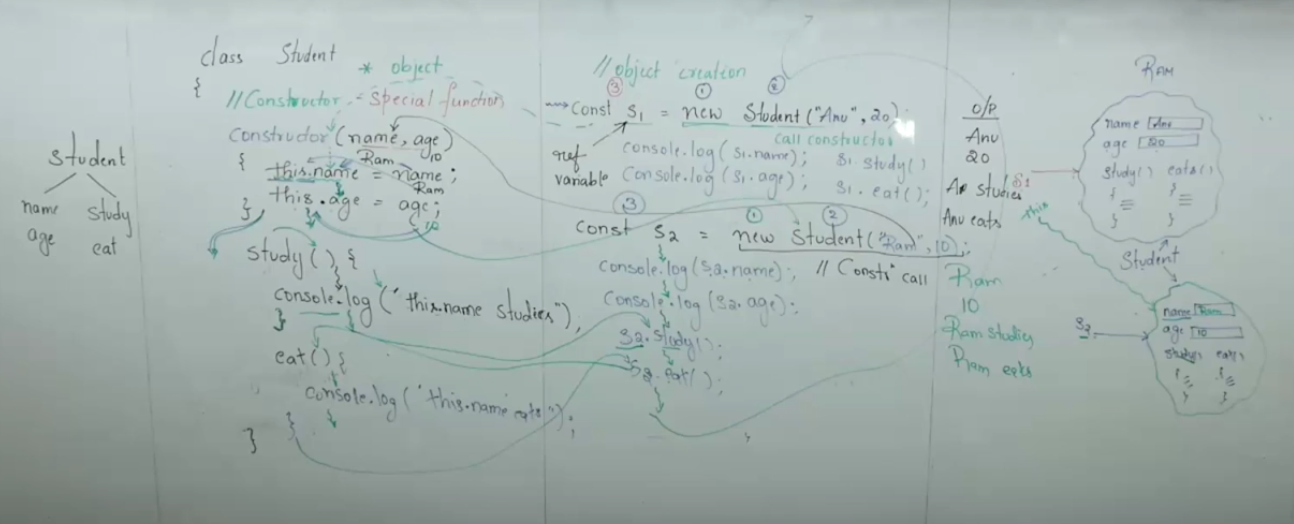 student
name study
age eat
class Student
{
* object
// Constructor - Special function
constructor (name, age)
10
Ram
{
this.name = name;
Ram
this.age = age;
10
}
study() {
console.log(' this.name studies");
}
eat() {
console.log(' this.name eats");
}
}
// object creation
③ ① ②
Const S1 = new Student("Anu", 20);
call constructor
ref
variable
console.log(S1.name); S1.study()
Console.log(S1.age); S1.eat();
③ ① ②
const S2 = new Student("Ram", 10);
console.log(S2.name); // Constr call
Console.log(S2.age);
S2.study();
S2.eat();
O/P
Anu
20
An studies
Anu eats
Ram
10
Ram studies
Ram eats
RAM
name Anu
age 20
study() eats()
{ {
} }
S1
this
Student
S2
name Ram
age 10
study() eat()
{ {
} }